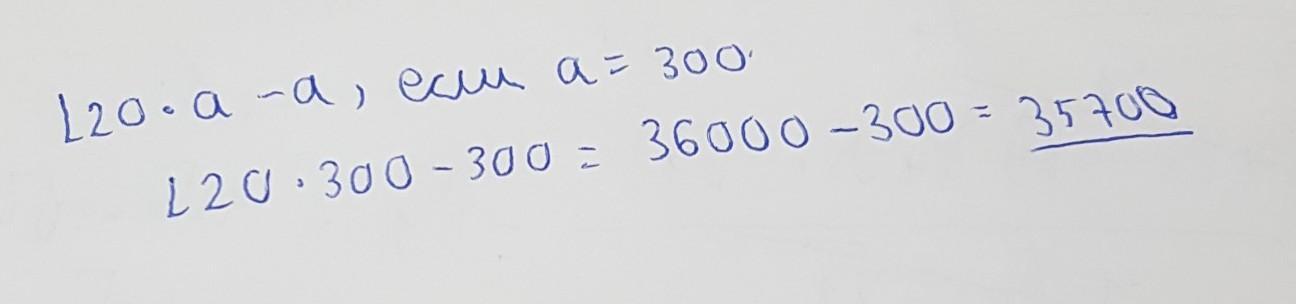 120·a-a, если a=300.
120·300-300=36000-300=35700